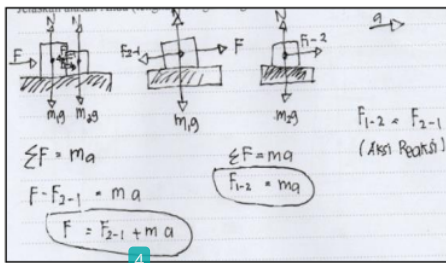 N N
F
m₁g m₂g
N
F₂₋₁ F
m₁g
N
F₁₋₂
m₂g
a
F₁₋₂ = F₂₋₁
(Aksi Reaksi)
ΣF = ma
F - F₂₋₁ = m a
F = F₂₋₁ + m a
ΣF = ma
F₁₋₂ = ma
4